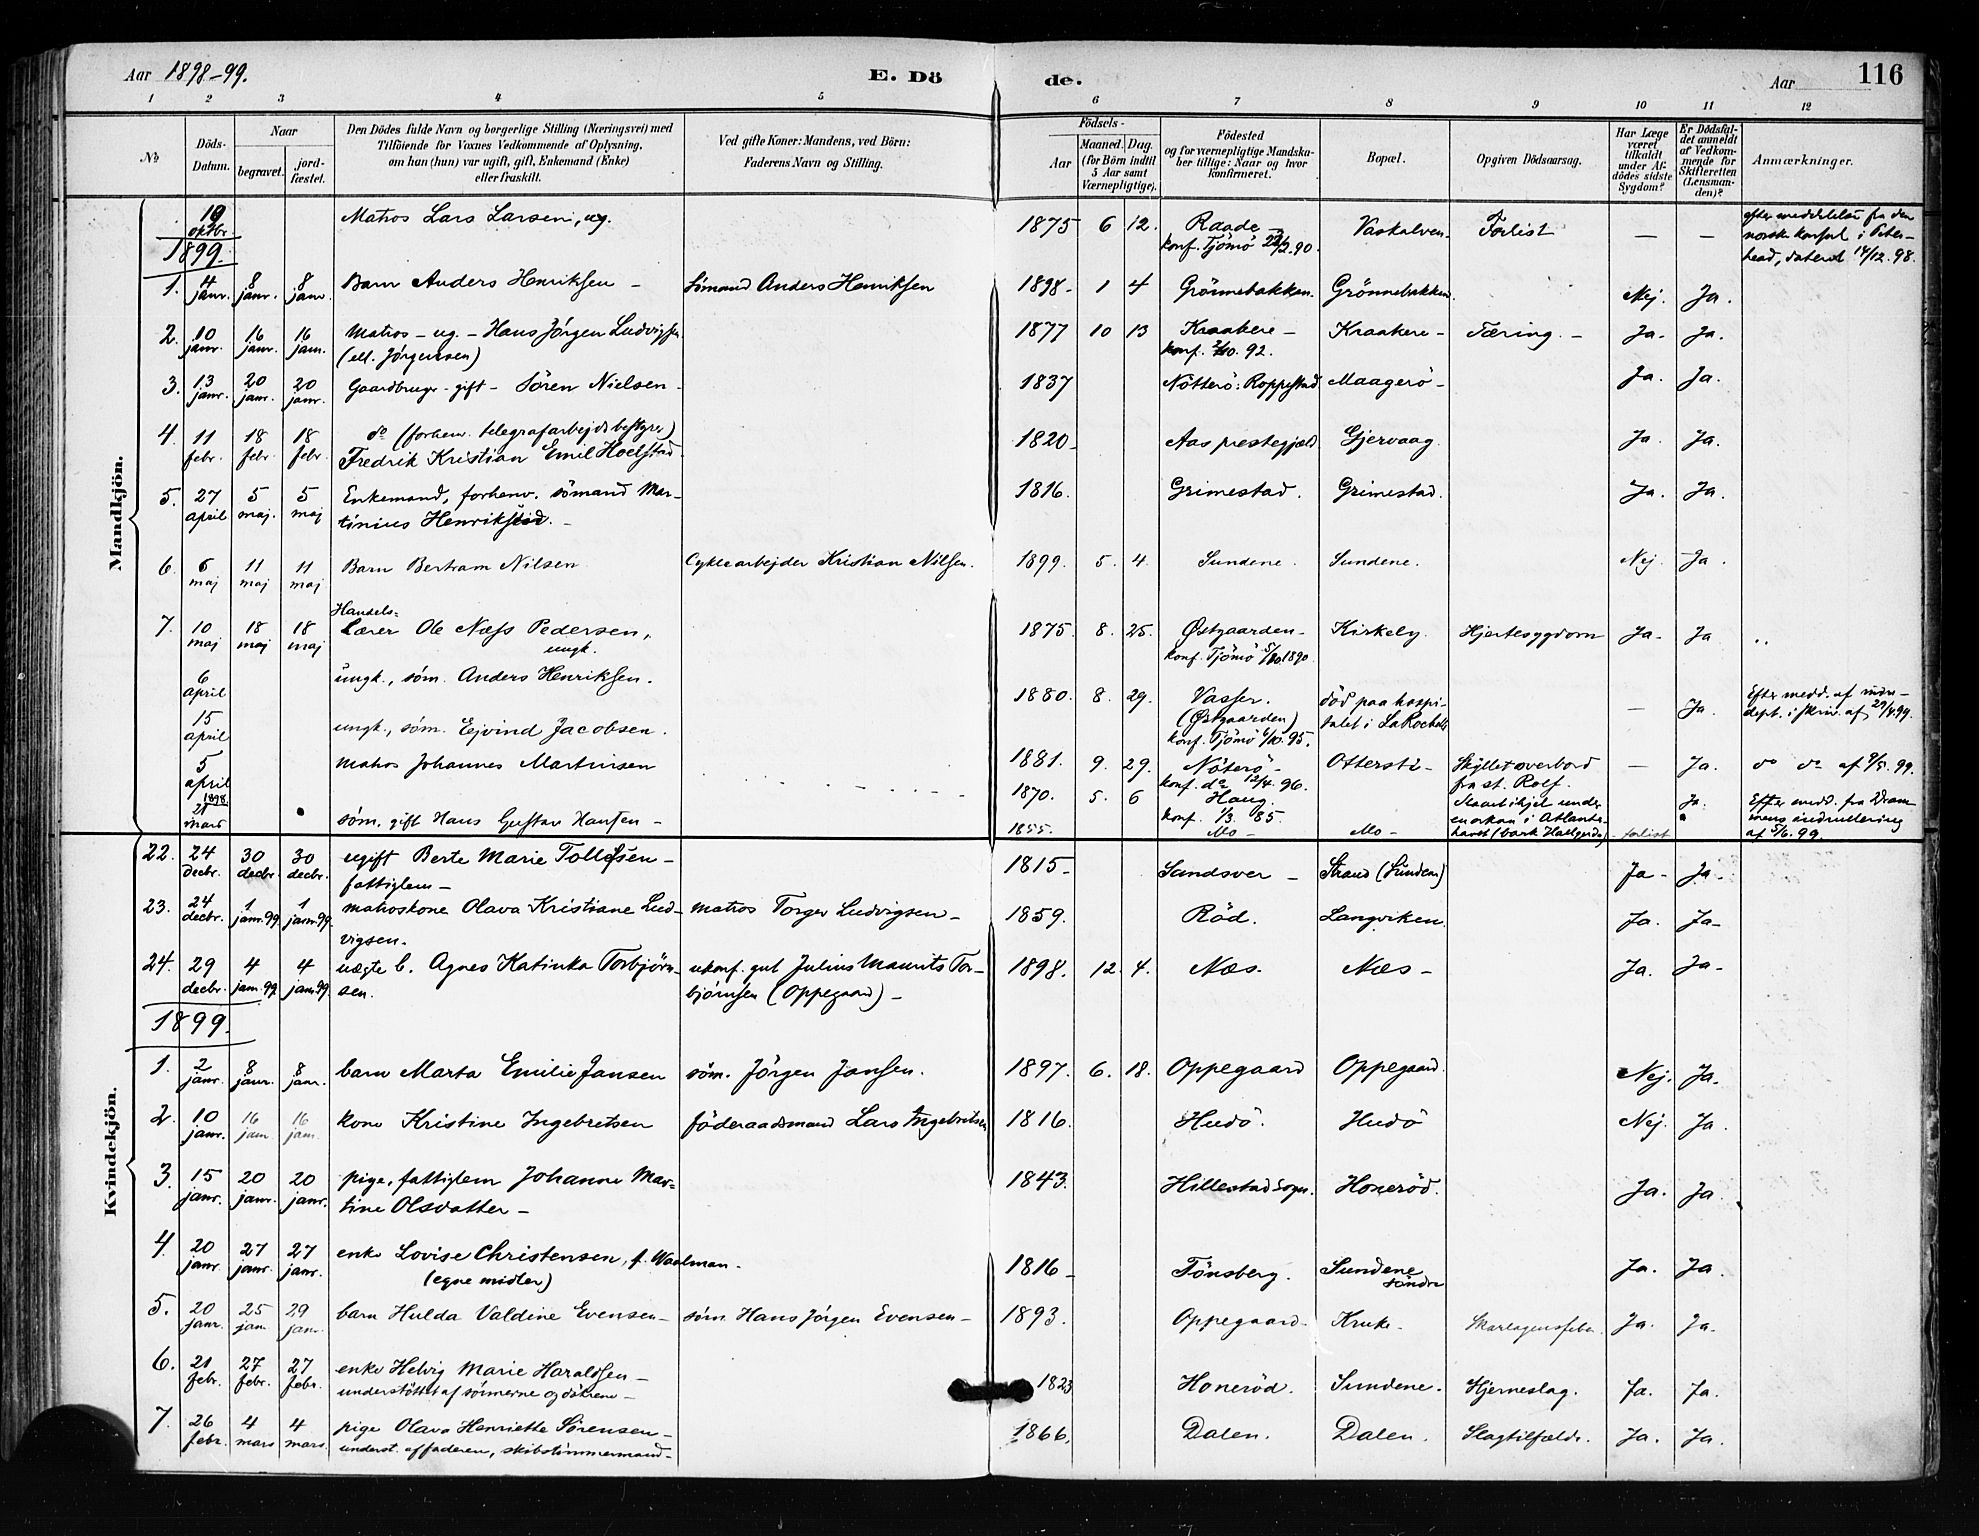 Aar 1898-99. E. Dö de. Aar 116
1 2 3 4 5 6 7 8 9 10 11 12
No Döds-Datum. Naar begravet. jord-fæstet. Den Dödes fulde Navn og borgerlige Stilling (Næringsvei) med Tilföiende for Voxnes Vedkommende af Oplysning, om han (hun) var ugift, gift, Enkemand (Enke) eller fraskilt. Ved gifte Koner: Mandens, ved Börn: Faderens Navn og Stilling. Födsels- Aar Maaned. Dag. (for Börn indtil 5 Aar samt Værnepligtige). Födested og for værnepligtige Mandskaber tillige: Naar og hvor konfirmeret. Bopæl. Opgiven Dödsaarsag. Har Læge været tilkaldt under Afdödes sidste Sygdom? Er Dödsfaldet anmeldt af Vedkommende for Skifteretten (Lensmanden)? Anmærkninger.
Mandkjön.
oktbr. Matros Lars Larsen, ug. 1875 6 12. Raade - konf. Tjömö 90. Vaskalven Forlist — — efter meddelelse fra den norske konsul i Peterhead, dateret 14/12. 98.
1899.
1. 4 janr. 8 janr. 8 janr. Barn Anders Henriksen - Sömand Anders Henriksen 1898- 1 4 Grönnebakken. Grönnebakken. Nej. Ja.
2. 10 janr. 16 janr. 16 janr. Matros - ug. - Hans Jörgen Ludvigsen (ell. Jörgensen) 1877 10 13 Kraakere - konf. 2/10. 92. Kraakere - Tæring. - Ja. Ja.
3. 13 janr. 20 janr. 20 janr. Gaardbruger - gift - Sören Nielsen - 1837 Nötterö: Roppestad Maagerö - Ja. Ja.
4. 11 febr. 18 febr. 18 febr. do (forhenv. telegrafarbejdsbestyrer) Fredrik Kristian Emil Hoelstad 1820- Aas prestegjæld Gjervaag. Ja. Ja.
5. 27 april 5 maj. 5 maj Enkemand, forhenv. sömand Martinius Henriksen. - 1816. Grimestad. Grimestad. Ja. Ja.
6. 6 maj 11 maj 11 maj Barn Bertram Nilsen Cyklearbejder Kristian Nilsen. 1899. 5. 4. Sundene. Sundene. Nej. Ja.
7. 10 maj 18 maj 18 maj Handels-Lærer Ole Næss Pedersen, ungk. 1875. 8. 25. Østgaarden - konf. Tjömö 5/10 1890. Kirkely. Hjertesygdom Ja. Ja ..
6 april ungk., söm. Anders Henriksen. 1880. 8. 29. Vasser. (Østgaarden) konf. Tjömö 6/10. 95. död paa hospitalet i La Rochelle — Ja. Efter medd. af indredept. i skriv. af 29/4 99.
15 april ungk., söm. Ejvind Jacobsen. 1881. 9. 29. Nöterö - konf. do 12/4. 96. Otterstö - Skyllet overbord fra st. Rolf. — Ja. do do af 9/5. 99.
5 april Matros Johannes Martinsen 1870. 5. 6 Haug. konf. 1/3. 85. Slaat ihjel under en orkan i Atlanterhavet Ja. Efter medd. fra Drammens indrullering af 5/6. 99.
1898. 21 mars söm. gift Hans Gustav Hansen - 1855. Mo - Mo - forlist
Kvindekjön.
22. 24 decbr. 30 decbr. 30 decbr. ugift Berte Marie Tollefsen - fattiglem - 1815- Sandsver - Strand (Sundene) Ja - Ja.
23. 24 decbr. 1 janr. 99. 1 janr. 99. matroskone Olava Kristiane Ludvigsen. matros Torger Ludvigsen - 1859. Röd. Langviken. Ja. Ja-
24. 29 decbr. 4 jan. 99. 4 jan. 99. uægte b. Agnes Katinka Torbjörnsen. ukonf. gut Julius Maurits Torbjörnsen (Oppegaard) - 1898. 12. 4. Næs. Næs - Ja. Ja-
1899.
1. 2 janr. 8 janr. 8 janr. barn Marta Emilie Jansen söm. Jörgen Jansen. 1897. 6. 18. Oppegaard Oppegaard. Nej. Ja.
2. 10 janr. 16 jan 16 jan. kone Kristine Ingebretsen föderaadsmand Lars Ingebretsen 1816. Hudö. Hudö Nej. Ja.
3. 15 janr. 20 janr. 20 janr. pige, fattiglem Johanne Martine Olsdatter - 1843. Hillestad sogn. Honeröd. Ja. Ja
4. 20 janr. 27 janr. 27 janr. enke Lovise Christensen, f. Waalman. (egne midler) 1816- Tönsberg. Sundene söndre Ja. Ja.
5. 20 janr. 25 jan 29 jan. barn Hulda Valdine Evensen - söm. Hans Jörgen Evensen - 1893. Oppegaard. Kruke. Skarlagensfeber. Ja. Ja.
6. 21 febr. 27 febr. 27 febr. enke Helvig Marie Haraldsen - understöttet af sönnerne og döttrene - 1823 Honeröd. Sundene. Hjerneslag. Ja. Ja.
7. 26 febr. 4 mars 4 mars. pige Olava Henriette Sörensen - underst. af faderen, skibstömmermand - 1866. Dalen. Dalen. Slagtilfælde. Ja. Ja.